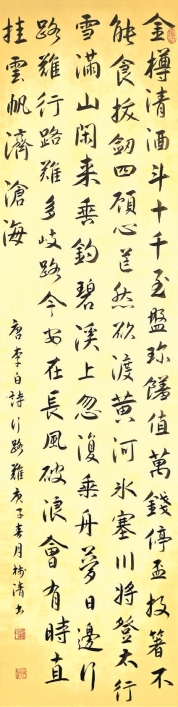 金樽清酒斗十千玉盤珍饈值萬錢停盃投箸不
能食拔劍四顧心茫然欲渡黃河冰塞川將登太行
雪滿山閑來垂釣碧溪上忽復乘舟夢日邊行
路難行路難多岐路今安在長風破浪會有時直
挂雲帆濟滄海
唐李白詩行路難庚子春月清書